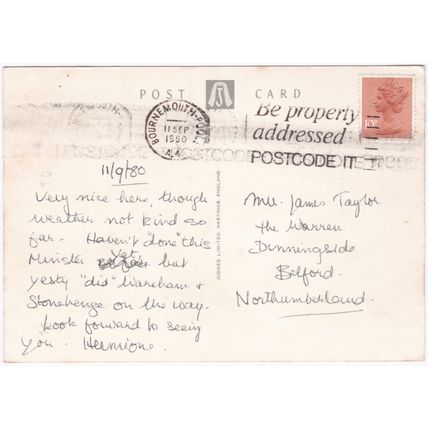 POST CARD
BOURNEMOUTH-POOLE
11 SEP
1980
Be properly
addressed
POSTCODE IT
10P
11/9/80
Very nice here, though
weather not kind so
far. Haven't "done" this
Minster yet but
yesty "did" Wareham &
Stonehenge on the way.
Look forward to seeing
you. Hermione.
JUDGES LIMITED HASTINGS ENGLAND
James Taylor
The Warren
Dunningside
Belford.
Northumberland.